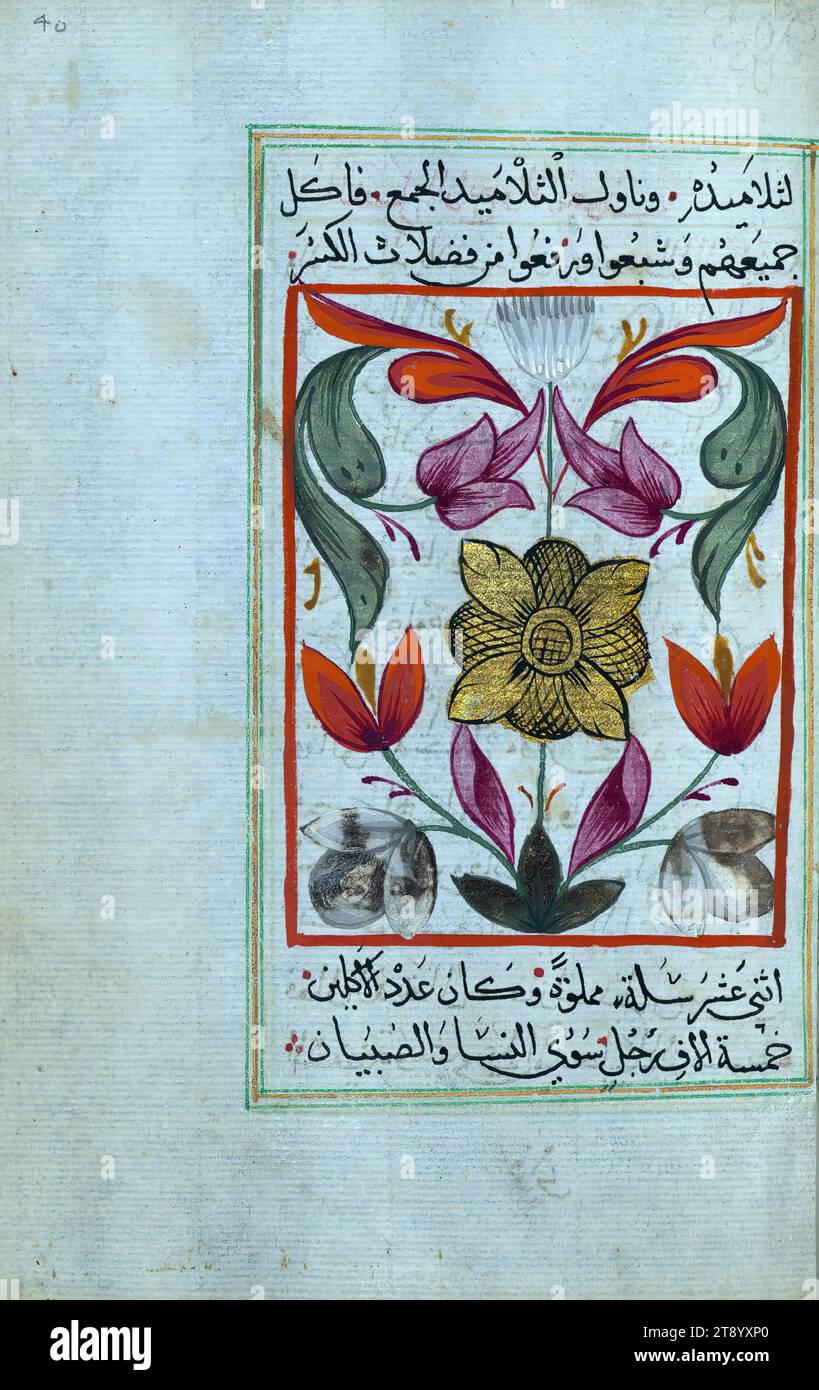 40
لتلاميذه. وناول التلاميد الجمع. فاكل
جميعهم وشبعوا ورفعوا من فضلات الكسر
اثنى عشر سلة مملوة وكان عدد الاكلين
خمسة الاف رجل سوي النسا والصبيان
alamy
Image ID: 2T8YXP0
www.alamy.com